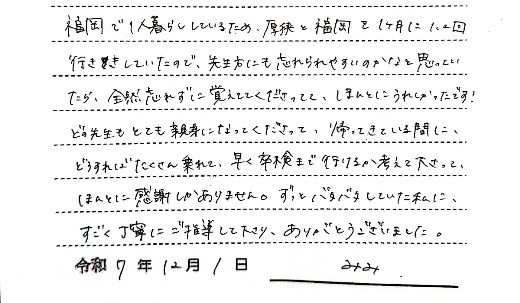 福岡で1人暮らししているため、厚狭と福岡を1ヶ月に1、2回
行き来していたので、先生方にも忘れられやすいのかなと思ってい
たら、全然忘れずに覚えててくださってて、ほんとにうれしかったです!
どの先生もとても親身になってくださって、帰ってきている間に、
どうすればたくさん乗れて、早く卒検まで行けるか考えて下さって、
ほんとに感謝しかありません。ずっとバタバタしていた私に、
すごく丁寧にご指導して下さり、ありがとうございました。
令和7年12月1日 みみ